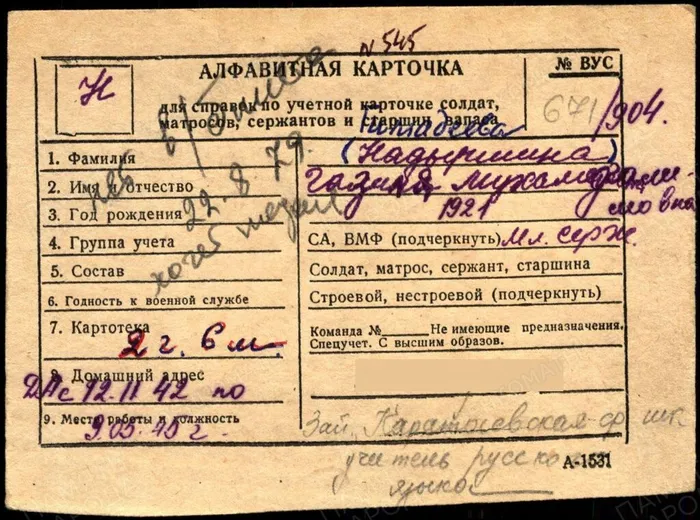 N 545
Н
АЛФАВИТНАЯ КАРТОЧКА
для справок по учетной карточке солдат,
матросов, сержантов и старшин запаса
№ ВУС
671/904.
1. Фамилия
(Кадыршина)
2. Имя и отчество
3. Год рождения
1921
22.8.79.
4. Группа учета
СА, ВМФ (подчеркнуть) мл. серж.
5. Состав
Солдат, матрос, сержант, старшина
6. Годность к военной службе
Строевой, нестроевой (подчеркнуть)
7. Картотека
2 г. 6 м.
Команда № Не имеющие предназначения.
Спецучет. С высшим образов.
8. Домашний адрес
ДАс 12.11 42 по
9. Место работы и должность
9.05.45 г.
учитель русско
языка
А-1531